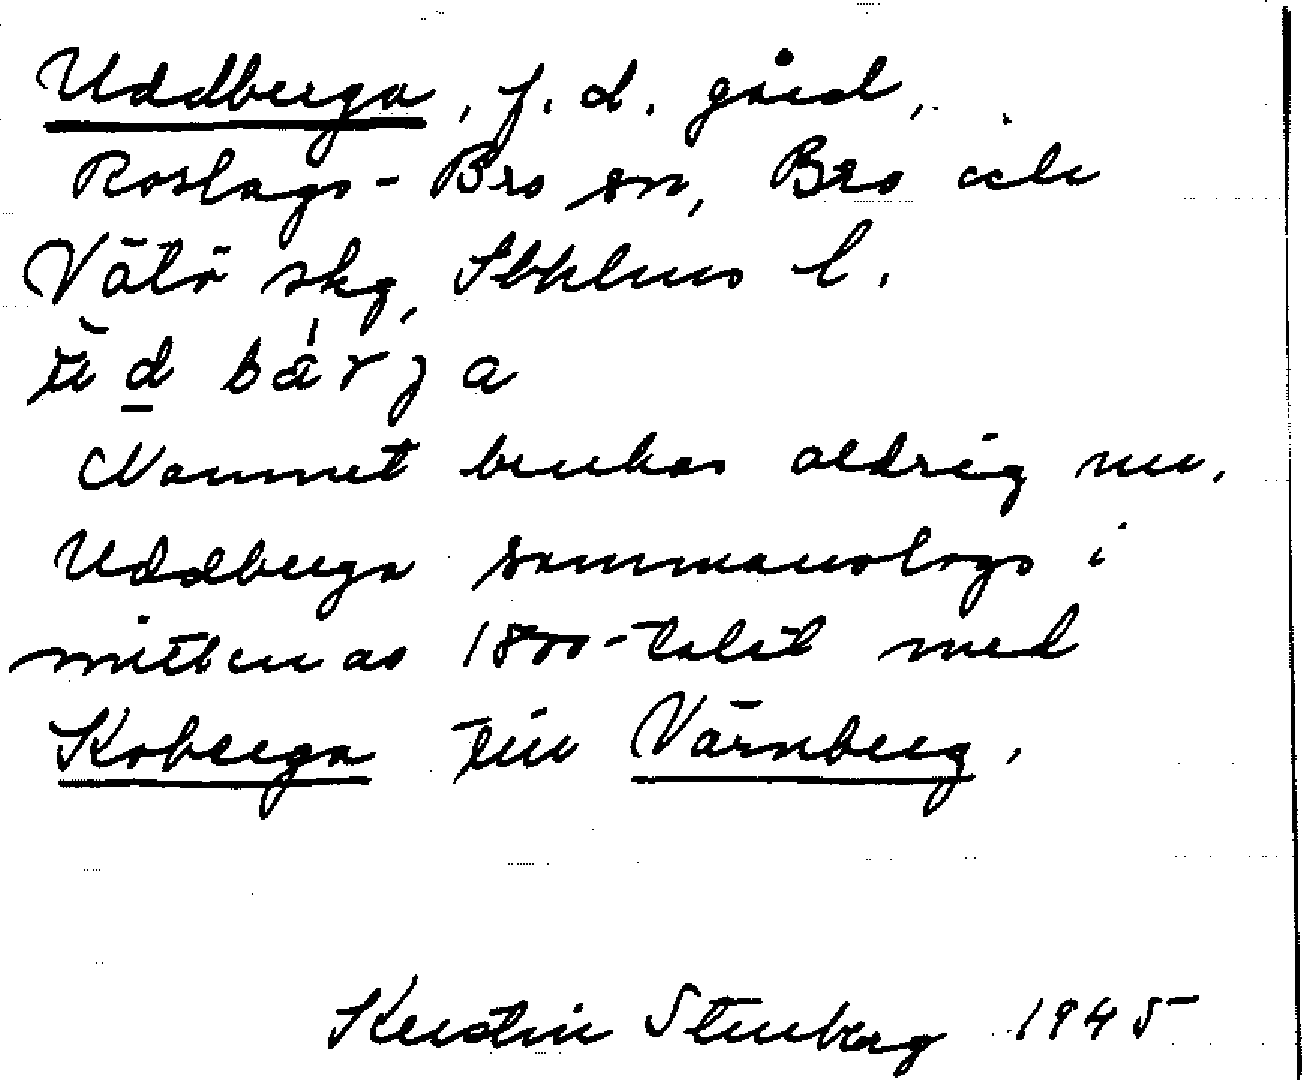 Uddberga, f. d. gård,
Roslags-Bro sn, Bro och
Vätö skg, Sthlms l.
ŭd bärja
Namnet brukas aldrig nu.
Uddberga sammanslogs i
mitten av 1800-talet med
Koberga till Värnberg.
Kerstin Stenberg 1945